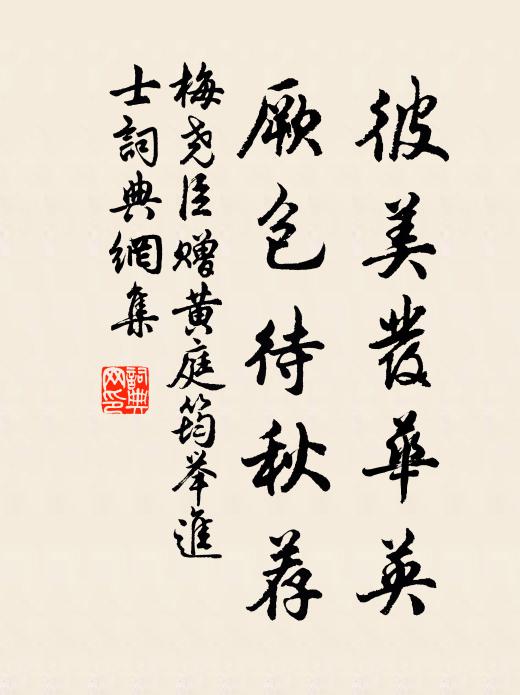 彼美發華英
厥包待秋荐
梅尧臣赠黄庭筠举進
士詞典網集
詞典
网印